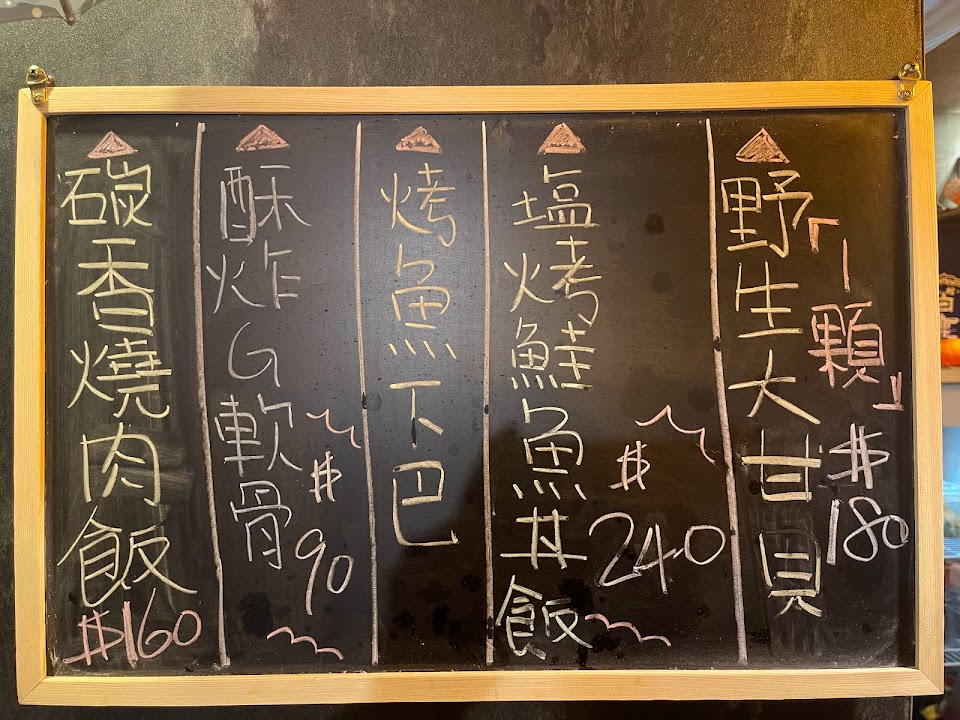 野生大甘貝
「一顆」
$180
塩烤鮭魚丼飯
$240
烤魚下巴
酥炸G軟骨
$90
碳香燒肉飯
$160